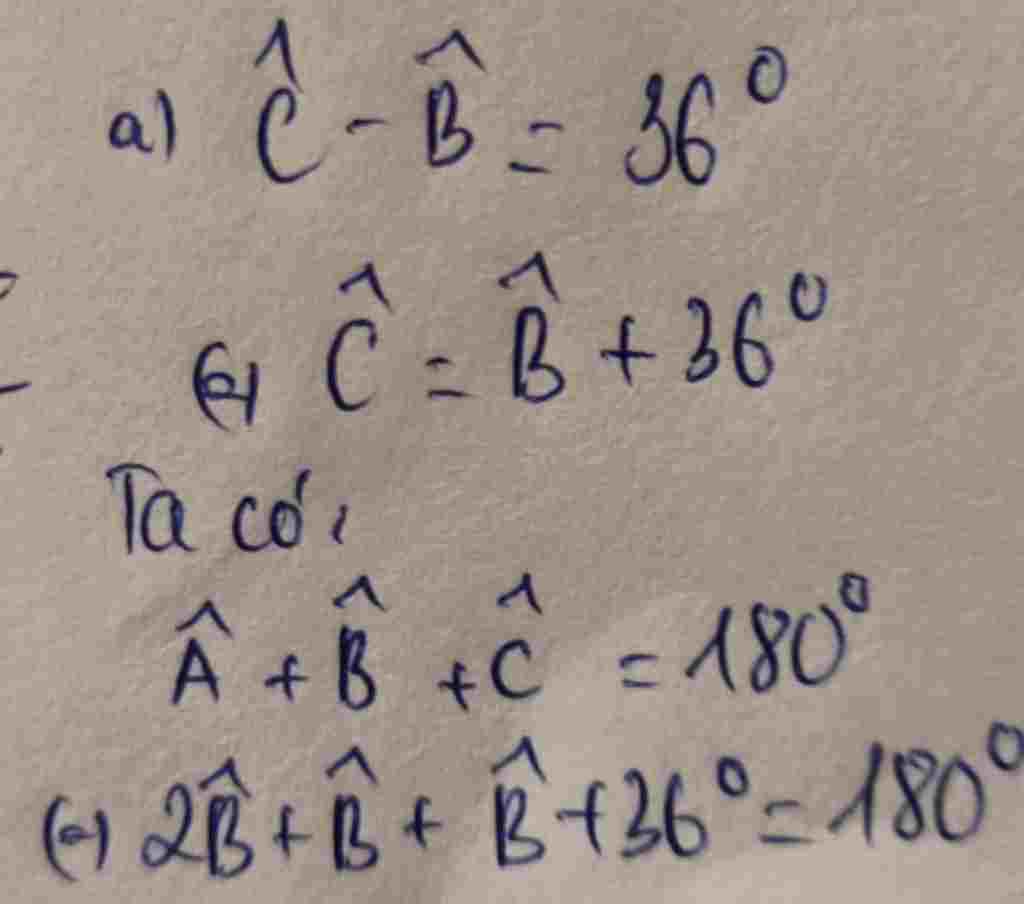 a) Ĉ - B̂ = 36⁰
(=) Ĉ = B̂ + 36⁰
Ta có:
Â + B̂ + Ĉ = 180⁰
(=) 2B̂ + B̂ + B̂ + 36⁰ = 180⁰